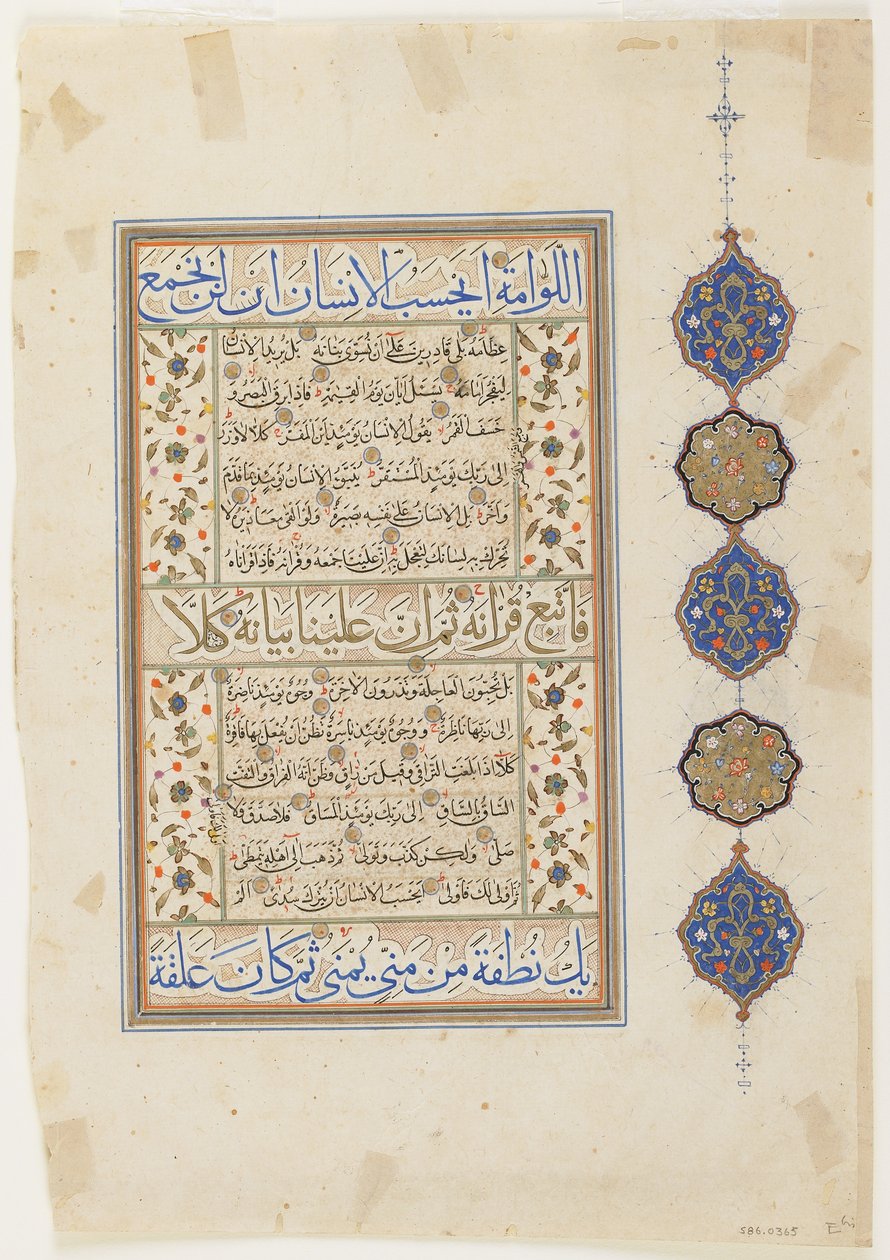 اللَّوَّامَةِ اَيَحْسَبُ الْاِنْسَانُ اَنْ لَنْ نَجْمَعَ
عِظَامَهُ بَلٰى قَادِرِينَ عَلٰٓى اَنْ نُسَوِّىَ بَنَانَهُ بَلْ يُرِيدُ الْاِنْسَانُ
لِيَفْجُرَ اَمَامَهُ يَسْئَلُ اَيَّانَ يَوْمُ الْقِيٰمَةِ فَاِذَا بَرِقَ الْبَصَرُ وَ
خَسَفَ الْقَمَرُ يَقُولُ الْاِنْسَانُ يَوْمَئِذٍ اَيْنَ الْمَفَرُّ كَلَّا لَا وَزَرَ
وجمع الشمس والقمر
اِلٰى رَبِّكَ يَوْمَئِذٍ الْمُسْتَقَرُّ يُنَبَّؤُا الْاِنْسَانُ يَوْمَئِذٍ بِمَا قَدَّمَ
وَاَخَّرَ بَلِ الْاِنْسَانُ عَلٰى نَفْسِهِ بَصِيرَةٌ وَلَوْ اَلْقٰى مَعَاذِيرَهُ لَا
تُحَرِّكْ بِهِ لِسَانَكَ لِتَعْجَلَ بِهِ اِنَّ عَلَيْنَا جَمْعَهُ وَقُرْانَهُ فَاِذَا قَرَاْنَاهُ
فَاتَّبِعْ قُرْانَهُ ثُمَّ اِنَّ عَلَيْنَا بَيَانَهُ كَلَّا
بَلْ تُحِبُّونَ الْعَاجِلَةَ وَتَذَرُونَ الْاٰخِرَةَ وُجُوهٌ يَوْمَئِذٍ نَاضِرَةٌ
اِلٰى رَبِّهَا نَاظِرَةٌ وَوُجُوهٌ يَوْمَئِذٍ بَاسِرَةٌ تَظُنُّ اَنْ يُفْعَلَ بِهَا فَاقِرَةٌ
كَلَّا اِذَا بَلَغَتِ التَّرَاقِىَ وَقِيلَ مَنْ رَاقٍ وَظَنَّ اَنَّهُ الْفِرَاقُ وَالْتَفَّتِ
السَّاقُ بِالسَّاقِ اِلٰى رَبِّكَ يَوْمَئِذٍ الْمَسَاقُ فَلَا صَدَّقَ وَلَا
صَلّٰى وَلٰكِنْ كَذَّبَ وَتَوَلّٰى ثُمَّ ذَهَبَ اِلٰٓى اَهْلِهِ يَتَمَطّٰى
ثُمَّ اَوْلٰى لَكَ فَاَوْلٰى اَيَحْسَبُ الْاِنْسَانُ اَنْ يُتْرَكَ سُدًى اَلَمْ
يَكُ نُطْفَةً مِنْ مَنِىٍّ يُمْنٰى ثُمَّ كَانَ عَلَقَةً
S86.0365